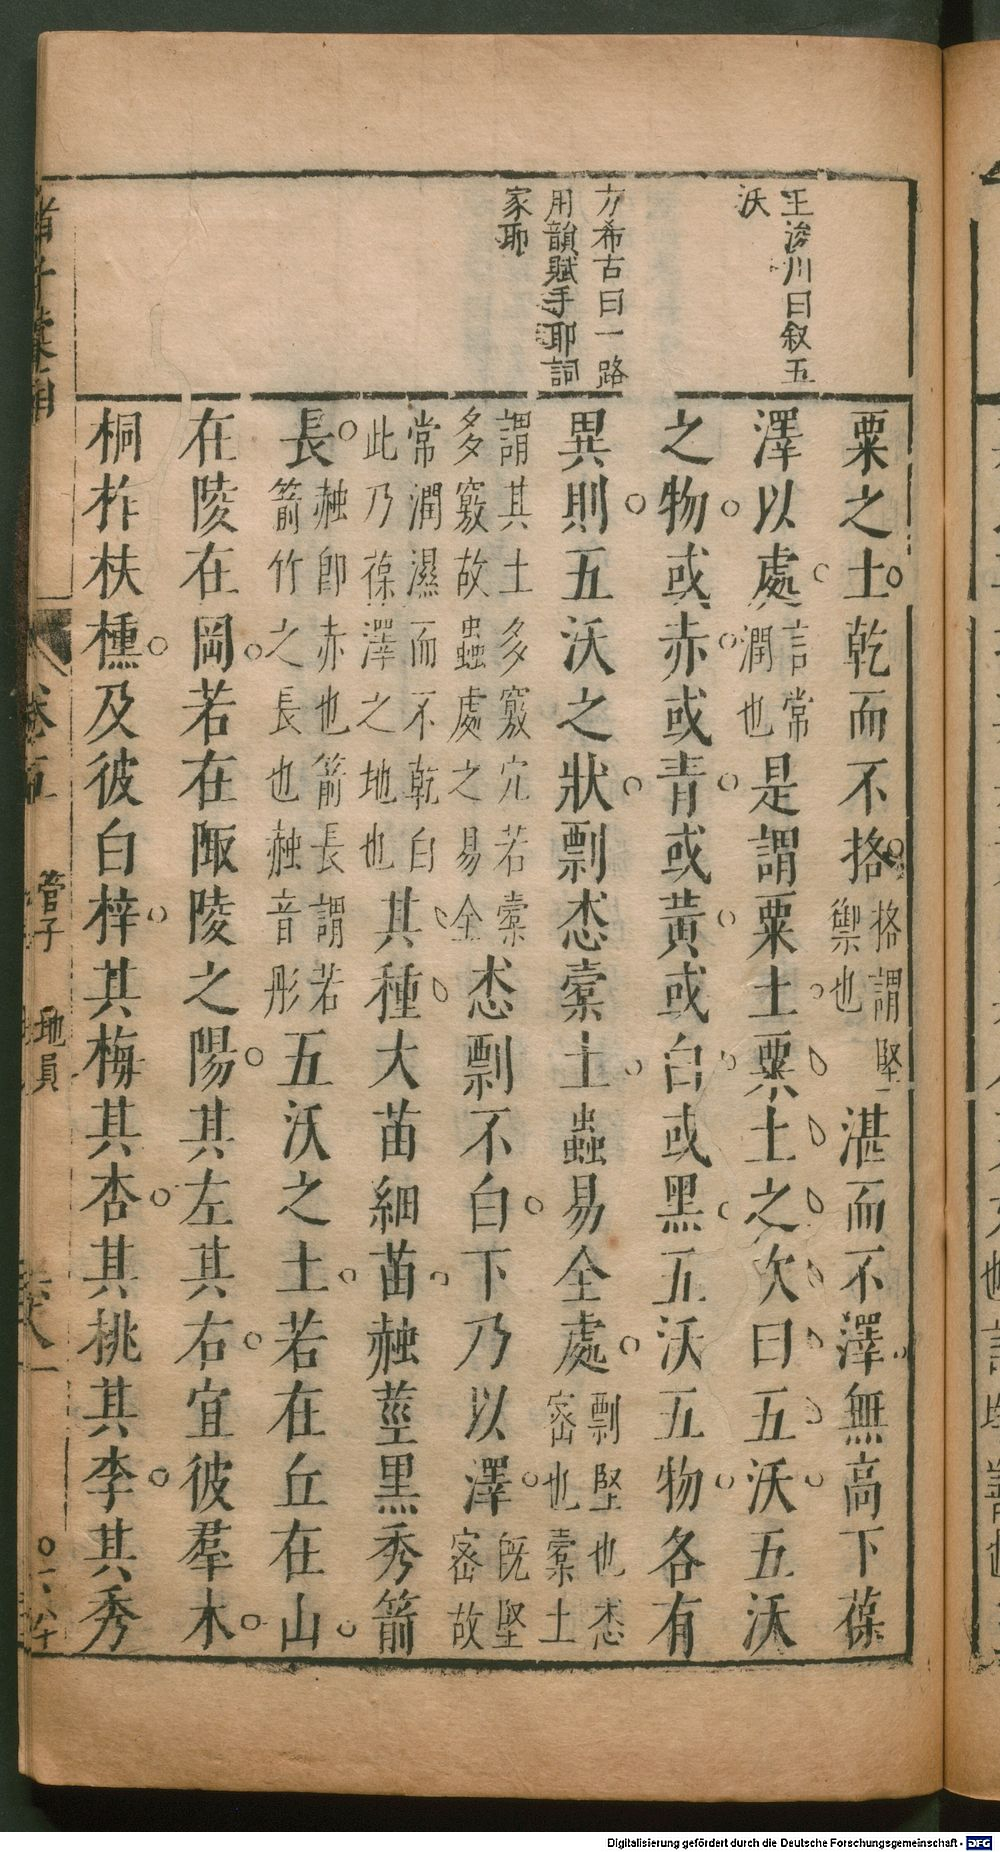 王浚川曰叙五
沃
方希古曰一路
用韻賦手耶詞
家耶
粟之土乾而不挌挌謂堅禦也湛而不澤無高下葆
澤以處言常潤也是謂粟土粟土之次曰五沃五沃
之物或赤或青或黃或白或黑五沃五物各有
異則五沃之狀剽怸橐土蟲易全處剽堅也怸密也橐土
謂其土多竅穴若橐多竅故蟲處之易全怸剽不白下乃以澤旣堅密故
常潤濕而不乾白此乃葆澤之地也其種大苗細苗赨莖黑秀箭
長赨卽赤也箭長謂若箭竹之長也赨音彤五沃之土若在丘在山
在陵在岡若在陬陵之陽其左其右宜彼羣木
桐柞枎櫄及彼白梓其梅其杏其桃其李其秀
卷五
管子
地員
Digitalisierung gefördert durch die Deutsche Forschungsgemeinschaft - DFG